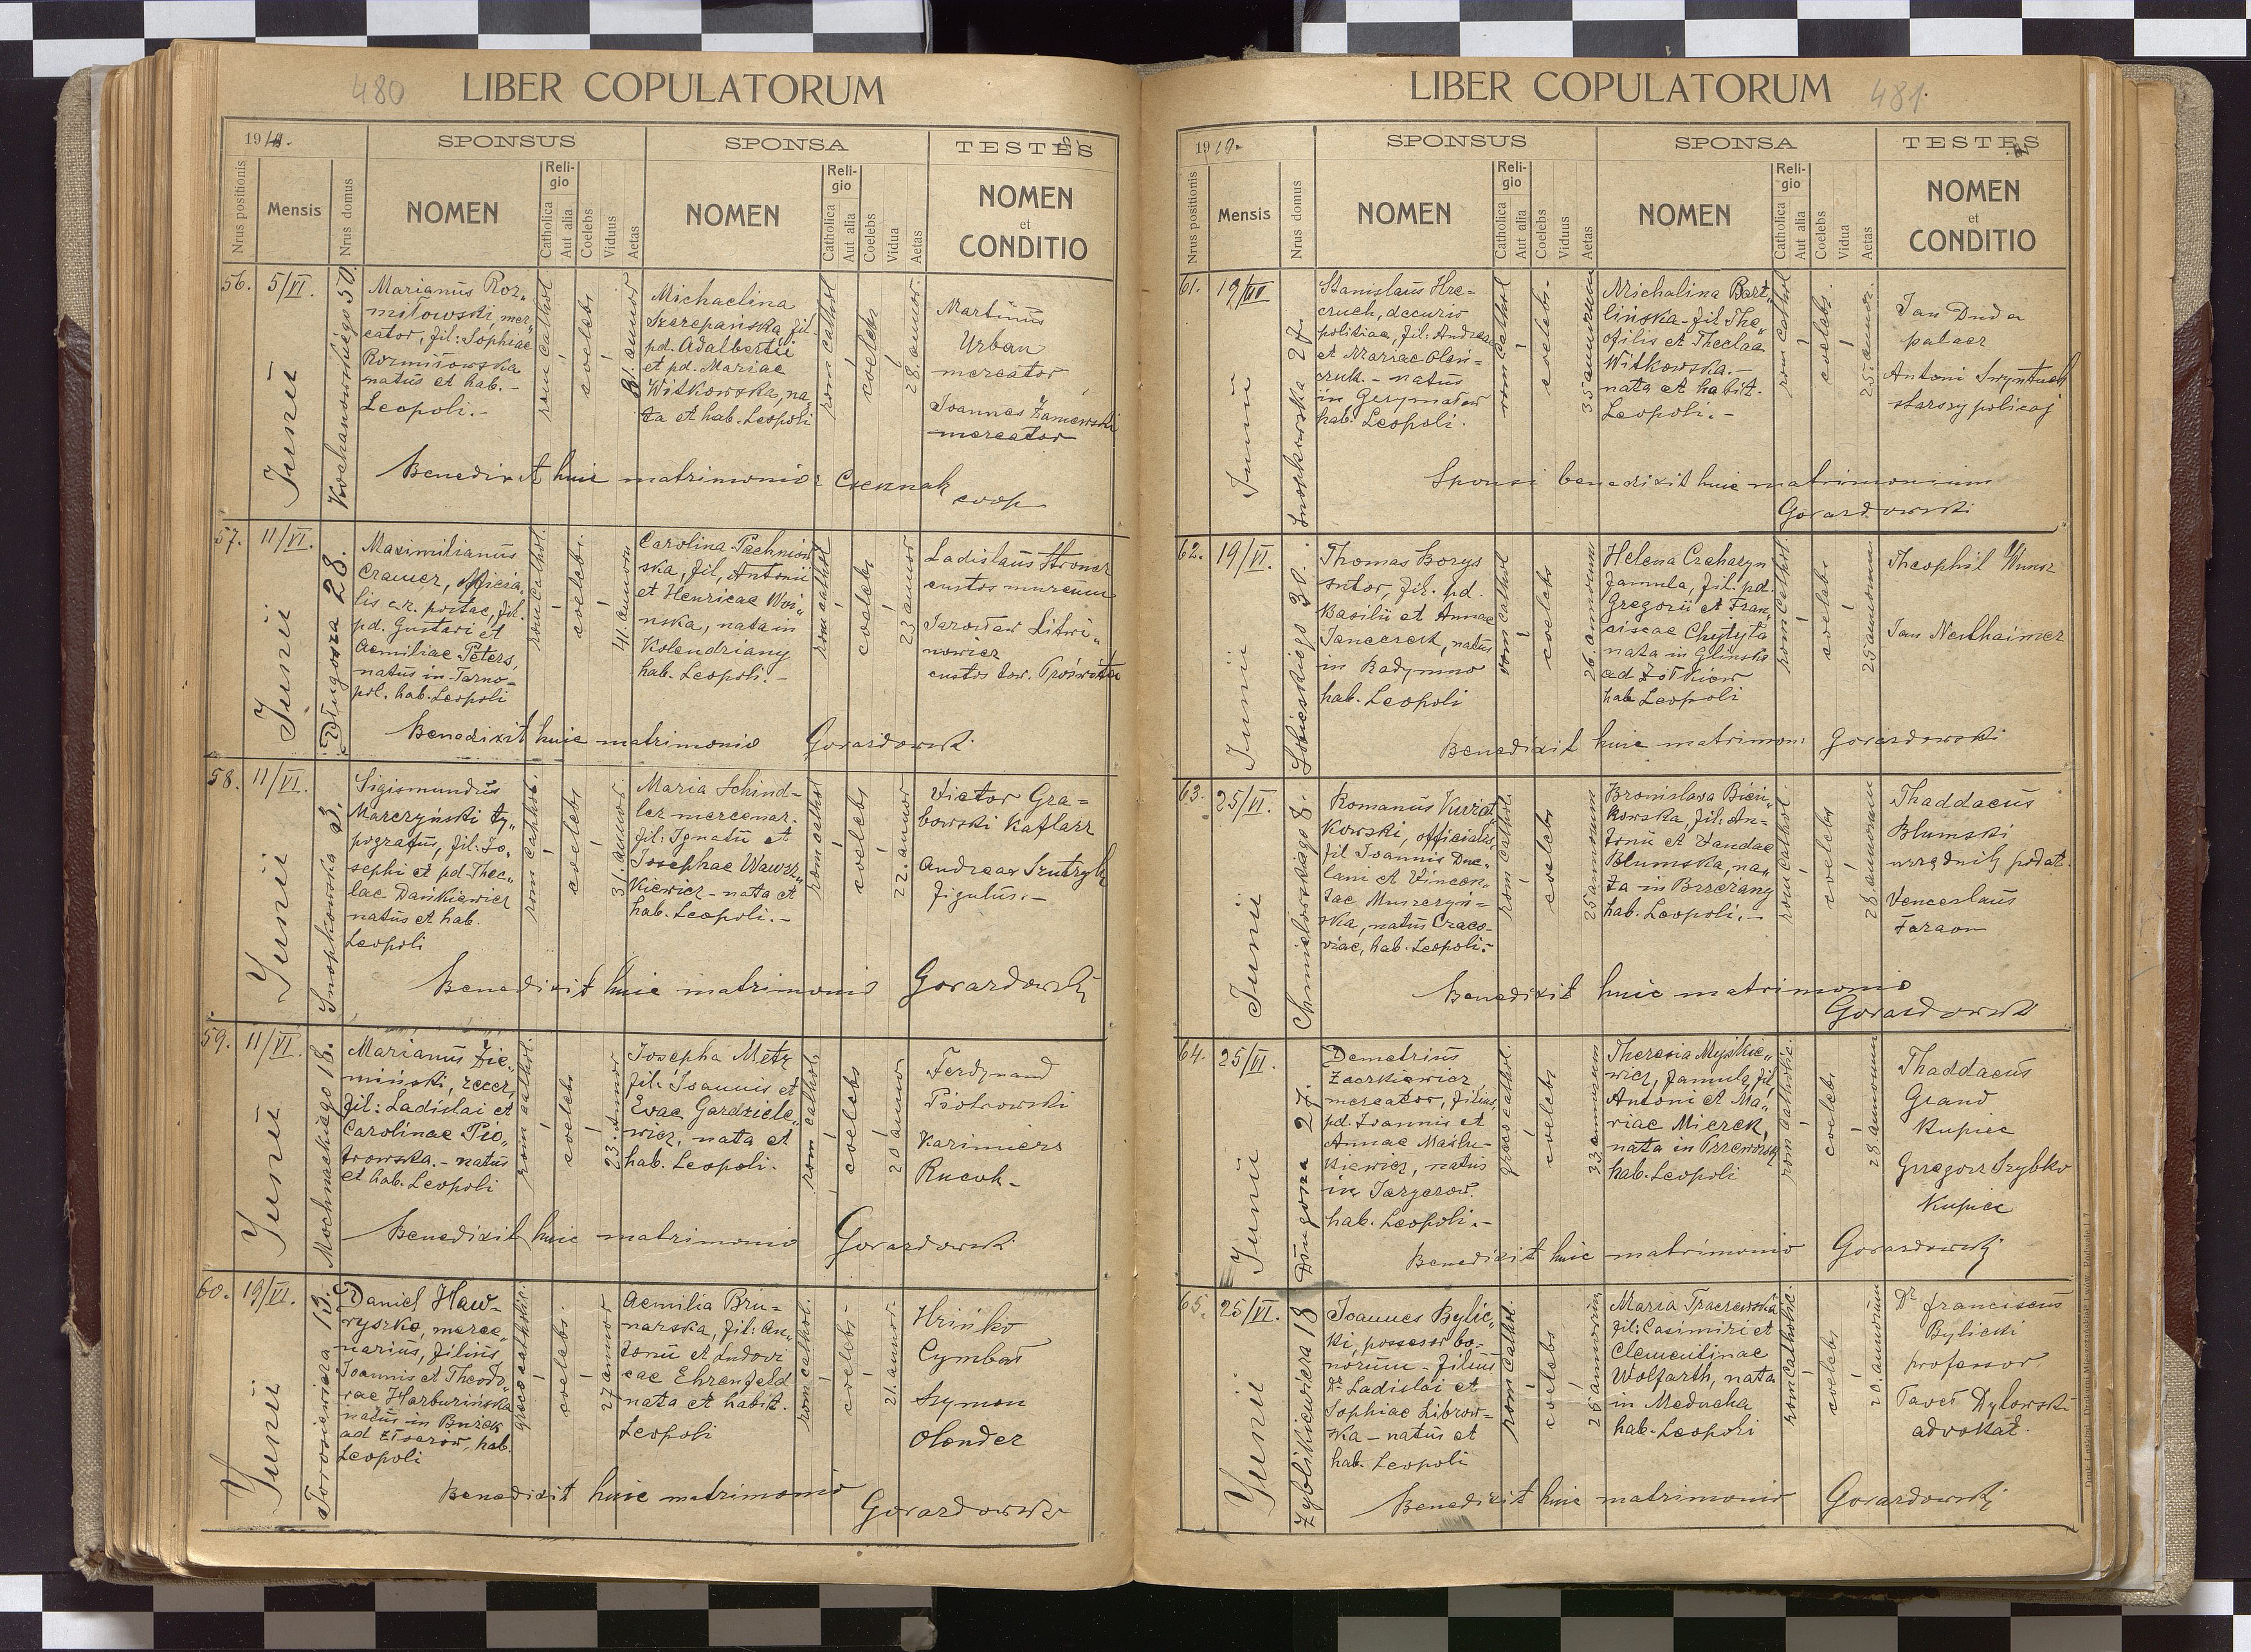 480 LIBER COPULATORUM
1910. SPONSUS SPONSA TESTES
Nrus positionis Mensis Nrus domus NOMEN Religio Catholica Aut alia Coelebs Viduus Aetas NOMEN Religio Catholica Aut alia Coelebs Vidua Aetas NOMEN et CONDITIO
56. 5/VI. Junii
Kochanowskiego 50.
Marianus Roz„
miłowski, mer„
cator, fil: Sophiae
Rozmiłowska
natus et hab. -
Leopoli. -
rom cathol
coelebs
31. annor
Michaelina
Szczepańska fil.
pd. Adalberti
et pd. Mariae
Witkowska, na„
ta et hab. Leopoli
rom cathol
coelebs
28. annor.
Martinus
Urban
mercator
Joannes Zaniewski
mercator
Benedixit huic matrimonio: Czennak
coop
57. 11/VI. Junii
Długosza 28.
Maximilianus
Cramer, officia„
lis c.r. postae, fil.
pd. Gustavi et
Aemiliae Peters,
natus in Tarno-
pol. hab. Leopoli
rom cathol.
coelebs.
41. annor
Carolina Pachniow
ska, fil. Antonii
et Henricae Woi„
nska, nata in
Kolendziany
hab. Leopoli. -
rom cathol
coelebs
23 annor
Ladislaus Stroner
custos museum
Jarosław Litwi„
nowicz
custos tow. Proświta
Benedixit huic matrimonio Gorazdowski
58. 11/VI. Junii
Snopkowska 3.
Sigismundus
Marczyński ty„
pografus, fil: Jo„
sephi et pd. Thec„
lae Dańkiewicz
natus et hab.
Leopoli
rom cathol.
coelebs
31. annor
Maria Schind-
ler mercenar.
fil: Ignatii et
Josephae Wawrz„
kiewicz - nata et
hab. Leopoli. -
rom cathol
coelebs
22. annor
Victor Gra =
bowski Kaflarz
Andreas Szutryk
figulus. -
Benedixit huic matrimonio Gorazdowski
59. 11/VI. Junii
Mochnackiego 18.
Marianus Zie„
miński, zecer,
fil: Ladislai et
Carolinae Pio„
trowska. - natus
et hab. Leopoli
rom cathol.
coelebs
23. Annor
Josepha Metz
fil: Joannis et
Evae Gardziele„
wicz, nata et
hab. Leopoli.
rom cathol.
coelebs
20 annor
Ferdynand
Piotrowski
Kazimierz
Rucok -
Benedixit huic matrimonio Gorazdowski
60. 19/VI. Junii
Torosiewicza 13.
Daniel Haw-
ryszko, merce„
narius, filius
Joannis et Theodo„
rae Harburińska
natus in Burek
ad Złoczów, hab.
Leopoli
greco catholic.
coelebs.
27 annor
Aemilia Bru-
narska, fil: An„
tonii et Ludovi
cae Ehrenfeld
nata et habit.
Leopoli
rom cathol.
coelebs.
21. annor.
Hrińko
Cymbał
Szymon
Olender
Benedixit huic matrimonio
Gorazdowski
LIBER COPULATORUM 481.
1910. SPONSUS SPONSA TESTES
Nrus positionis Mensis Nrus domus NOMEN Religio Catholica Aut alia Coelebs Viduus Aetas NOMEN Religio Catholica Aut alia Coelebs Vidua Aetas NOMEN et CONDITIO
61. 19/VI Junii
Snopkowska 27.
Stanislaus Hre-
cruch, decurio
politiae, fil: Andreae
et Mariae Olen-
cruk. - natus
in
hab. Leopoli.
rom cathol
coelebs.
35 annorum
Michalina Bart„
lińska - fil. The„
ofilis et Theclae
Witkowska. -
nata et habit.
Leopoli. -
rom cathol
coelebs.
25. annor.
Jan Duda
palacz
Antoni
starszy policaj
Sponsi benedixit huic matrimonium
Gorazdowski
62. 19/VI. Junii
Sobieskiego 30.
Thomas Borys
sutor, fil. pd.
Basilii et Annae
Janczerek, natus
in Radymno
hab. Leopoli
rom cathol
coelebs
26. annorum
Helena Czcharyn
famula, fil. pd.
Gregorii et Fran„
ciscae Chytyta
nata in Glinsko
ad Żółkiew
hab Leopoli
rom cathol.
coelebs
25 annorum
Theophil Wunsz
Jan Neulhaimer
Benedixit huic matrimoni Gorazdowski
63. 25/VI. Junii
Chmielowskiego 8.
Romanus Kwiat„
kowski, officialis,
fil Joannis Duc„
lani et Vincen„
tae Muszczyń-
ska, natus Craco-
viae, hab. Leopoli. -
rom cathol.
coelebs
25 annorum
Bronislava Bień„
kowska, fil: An-
tonii et Vandae
Blumska, na„
ta in Brzeżany
hab. Leopoli. -
rom cathol.
coelebs
28. annorum
Thaddaeus
Blumski
urzędnik podat.
Venceslaus
Faraon
Benedixit huic matrimonio
Gorazdowski
64. 25/VI. Junii
Długosza 27.
Demetrius
Zaorkiewicz
mercator, filius,
pd. Joannis et
Annae Maslu-
kiewicz, natus
in Jazgarow.
hab. Leopoli. -
greco cathol.
coelebs
33 annorum
Theresia Myśkie„
wicz, famula, fil
Antoni et Ma„
riae Mierek,
nata in Przeworsk
hab. Leopoli
rom catholic.
coelebs
28. annorum
Thaddaeus
Grand
kupiec
Grzegorz Szybko
kupiec
Benedixit huic matrimonio Gorazdowski
65. 25/VI. Junii
Zyblikiewicza 18
Joannes Bylic„
ki, possesor bo-
norum - filius
Dr Ladislai et
Sophiae Librow-
ska - natus et
hab. Leopoli
rom cathol.
coelebs
26 annorum
Maria Traczewska
fil: Casimiri et
Clementinae
Wolfarth, nata
in Meducha
hab. Leopoli
rom catholic.
coelebs
20. annorum
Dr franciscus
Bylicki
professor.
Paweł Dylowski
advokat.
Benedixit huic matrimonio Gorazdowski